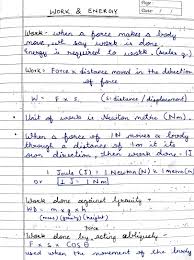 Page
Date / /
WORK & ENERGY
Work - when a force makes a body
move, we say work is done.
Energy is required to work. (Joules J.)
Work : Force x distance moved in the direction
of force
W = F x s. (s: distance / displacement)
Unit of work is Newton metre (Nm).
When a force of 1N moves a body
through a distance of 1m in its
own direction, then work done - 1J
1 Joule (J) = 1 Newton (N) x 1 metre (m)
Or 1J = 1Nm
Work done against gravity -
WD = m x g x h
(mass) (gravity) (height)
Force
Work done by acting obliquely -
F x s x COS θ
used when the movement of the body